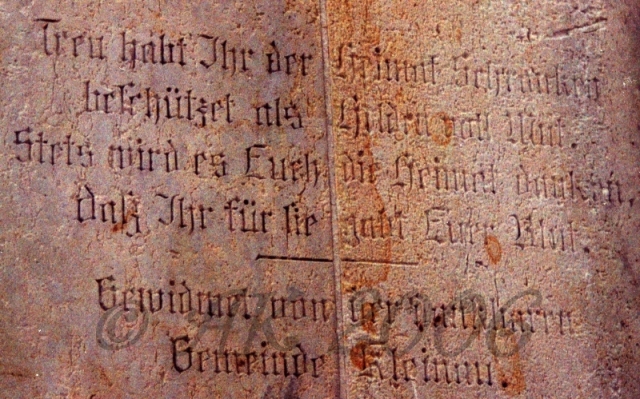 Treu habt Ihr der Heimat Schranken
beschützet als Helden voll Mut.
Stets wird es Euch die Heimat danken,
daß Ihr für sie gabt Euer Blut.
Gewidmet von der dankbaren
Gemeinde Kleinau.
© AK 2006